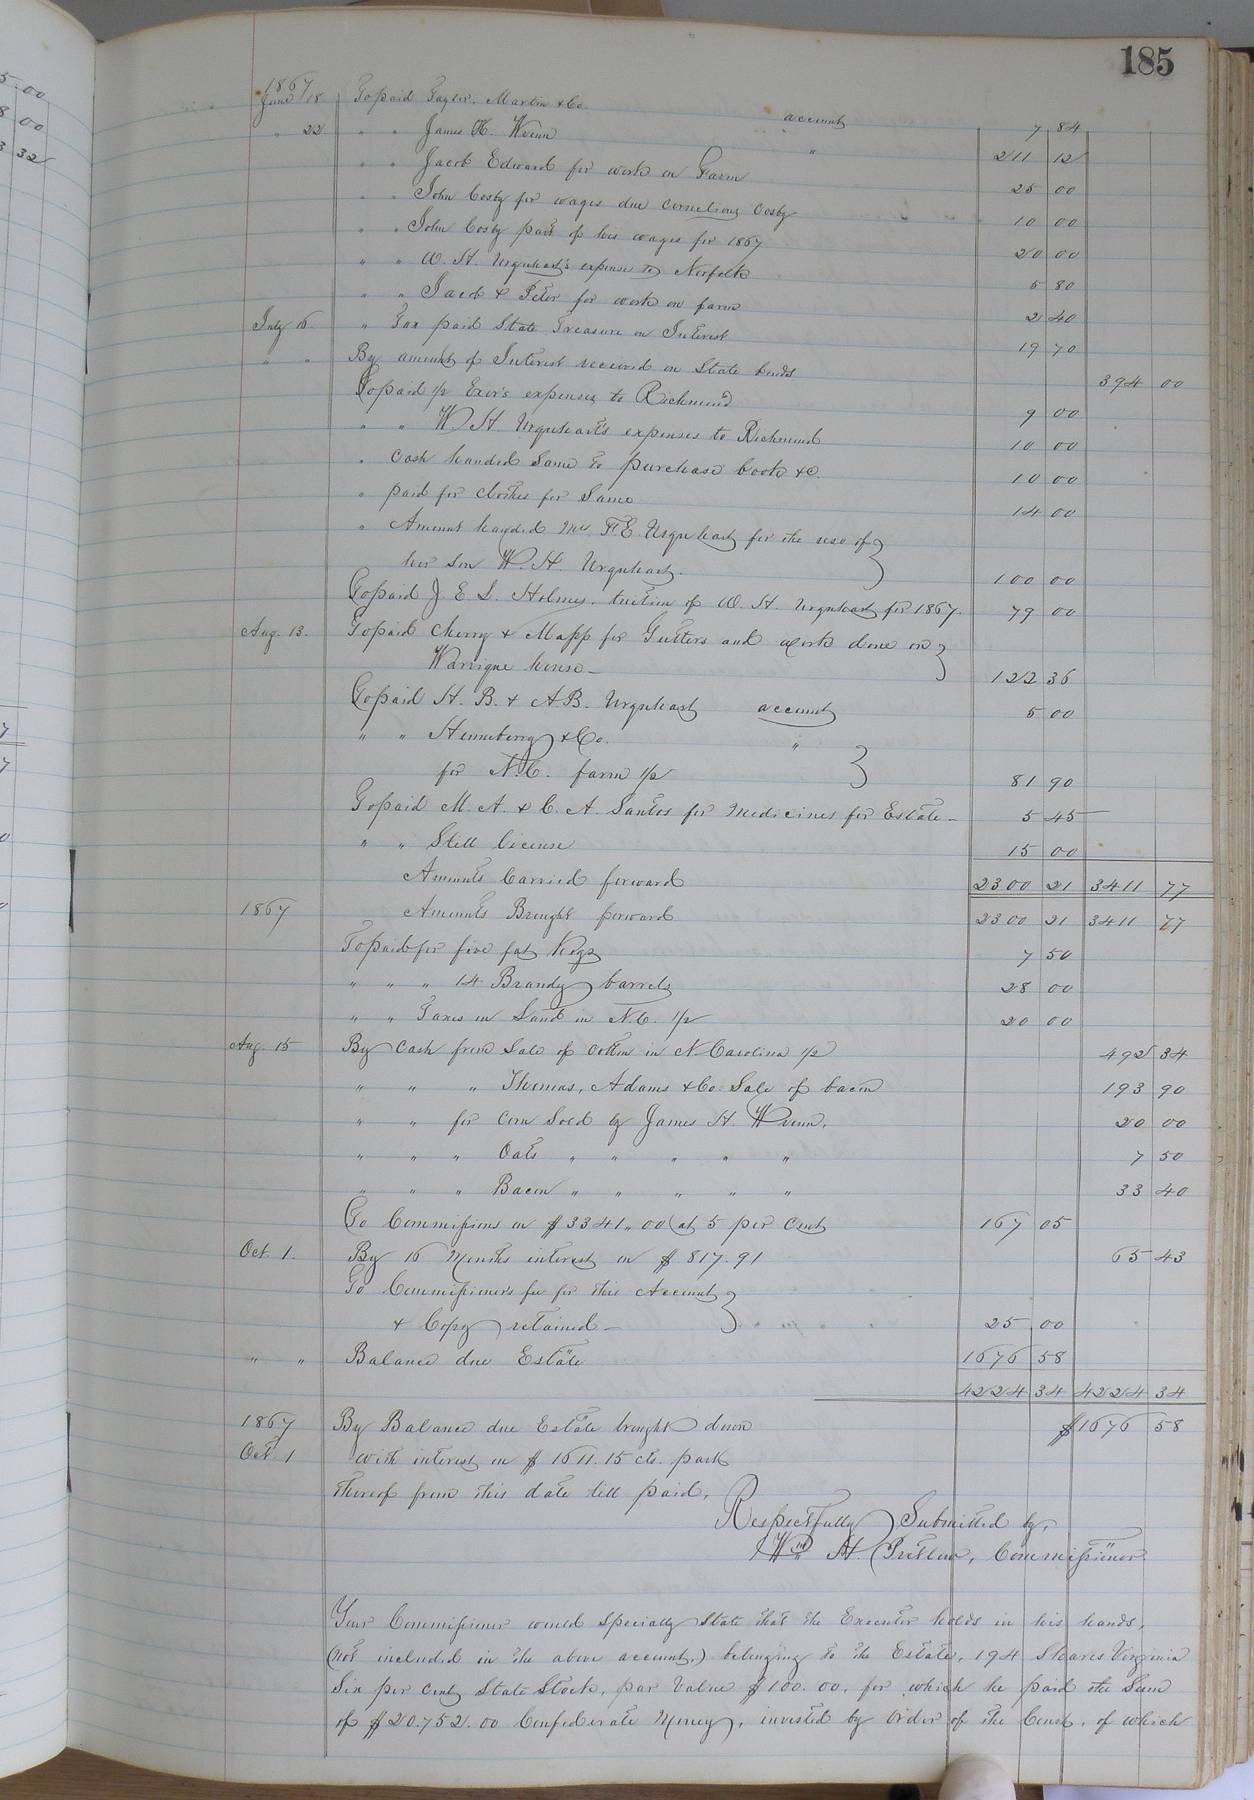 5 00
8 00
3 32
185
1867
June 18 To paid Taylor, Martin & Co. account 7 84
" 22 " " James H. Vvinn " 211 12
" " Jacob Edward for work on Farm 25 00
" " John Cosby for wages due Cornelious Cosby 10 00
" " John Cosby part of his wages for 1867 20 00
" " W. H. Urquhart's expenses to Norfolk 5 80
" " Jacob & Peter for work on farm 2 40
July 16. " Tax paid State Treasure on Interest 19 70
" " By amount of Interest received on State bonds 394 00
To paid 1/2 Exor's expenses to Richmond 9 00
" " W. H. Urquhart's expenses to Richmond 10 00
" Cash handed Same to purchase books &c. 10 00
" paid for clothes for Same 14 00
" Amount handed Mrs. F. E. Urquhart for the use of
her son W. H. Urquhart. 100 00
To paid J. E. L. Holmes, tuition of W. H. Urquhart for 1867. 79 00
Aug. 13. To paid Cherry & Mapp for Gutters and work done on
Warrique house 122 36
To paid H. B. & A. B. Urquhart account 5 00
" " Henneberry & Co. "
for N. C. farm 1/2 81 90
To paid M. A. & C. A. Santos for Medicines for Estate 5 45
" " Still license 15 00
Amounts Carried forward 2300 21 3411 77
1867 Amounts Brought forward 2300 21 3411 77
To paid for five fat kegs 7 50
" " " 14 Brandy barrels 28 00
" " Taxes on Land in N.C. 1/2 20 00
Aug. 15 By Cash from Sale of Cotton in N. Carolina 1/2 492 34
" " " Thomas, Adams & Co. Sale of bacon 193 90
" " for corn Sold by James H. Vvinn. 20 00
" " " Oats " " " " " 7 50
" " " Bacon " " " " " 33 40
To Commissions on $3341.00 at 5 per cent 167 05
Oct. 1. By 16 Months interest on $817.91 65 43
To Commissioner's fee for this Account
& Copy retained 25 00
" " Balance due Estate 1676 58
4224 34 4224 34
1867 By Balance due Estate brought down $1676 58
Oct. 1 with interest on $1611.15 cts. part
thereof from this date till paid,
Respectfully Submitted by,
Wm. H. Pretlow, Commissioner.
Your Commissioner would specially State that the Executor holds in his hands,
(not included in the above account,) belonging to the Estate, 194 Shares Virginia
Six per cent State Stock, par Value $100.00, for which he paid the Sum
of $20.752.00 Confederate Money, invested by Order of the Court, of which